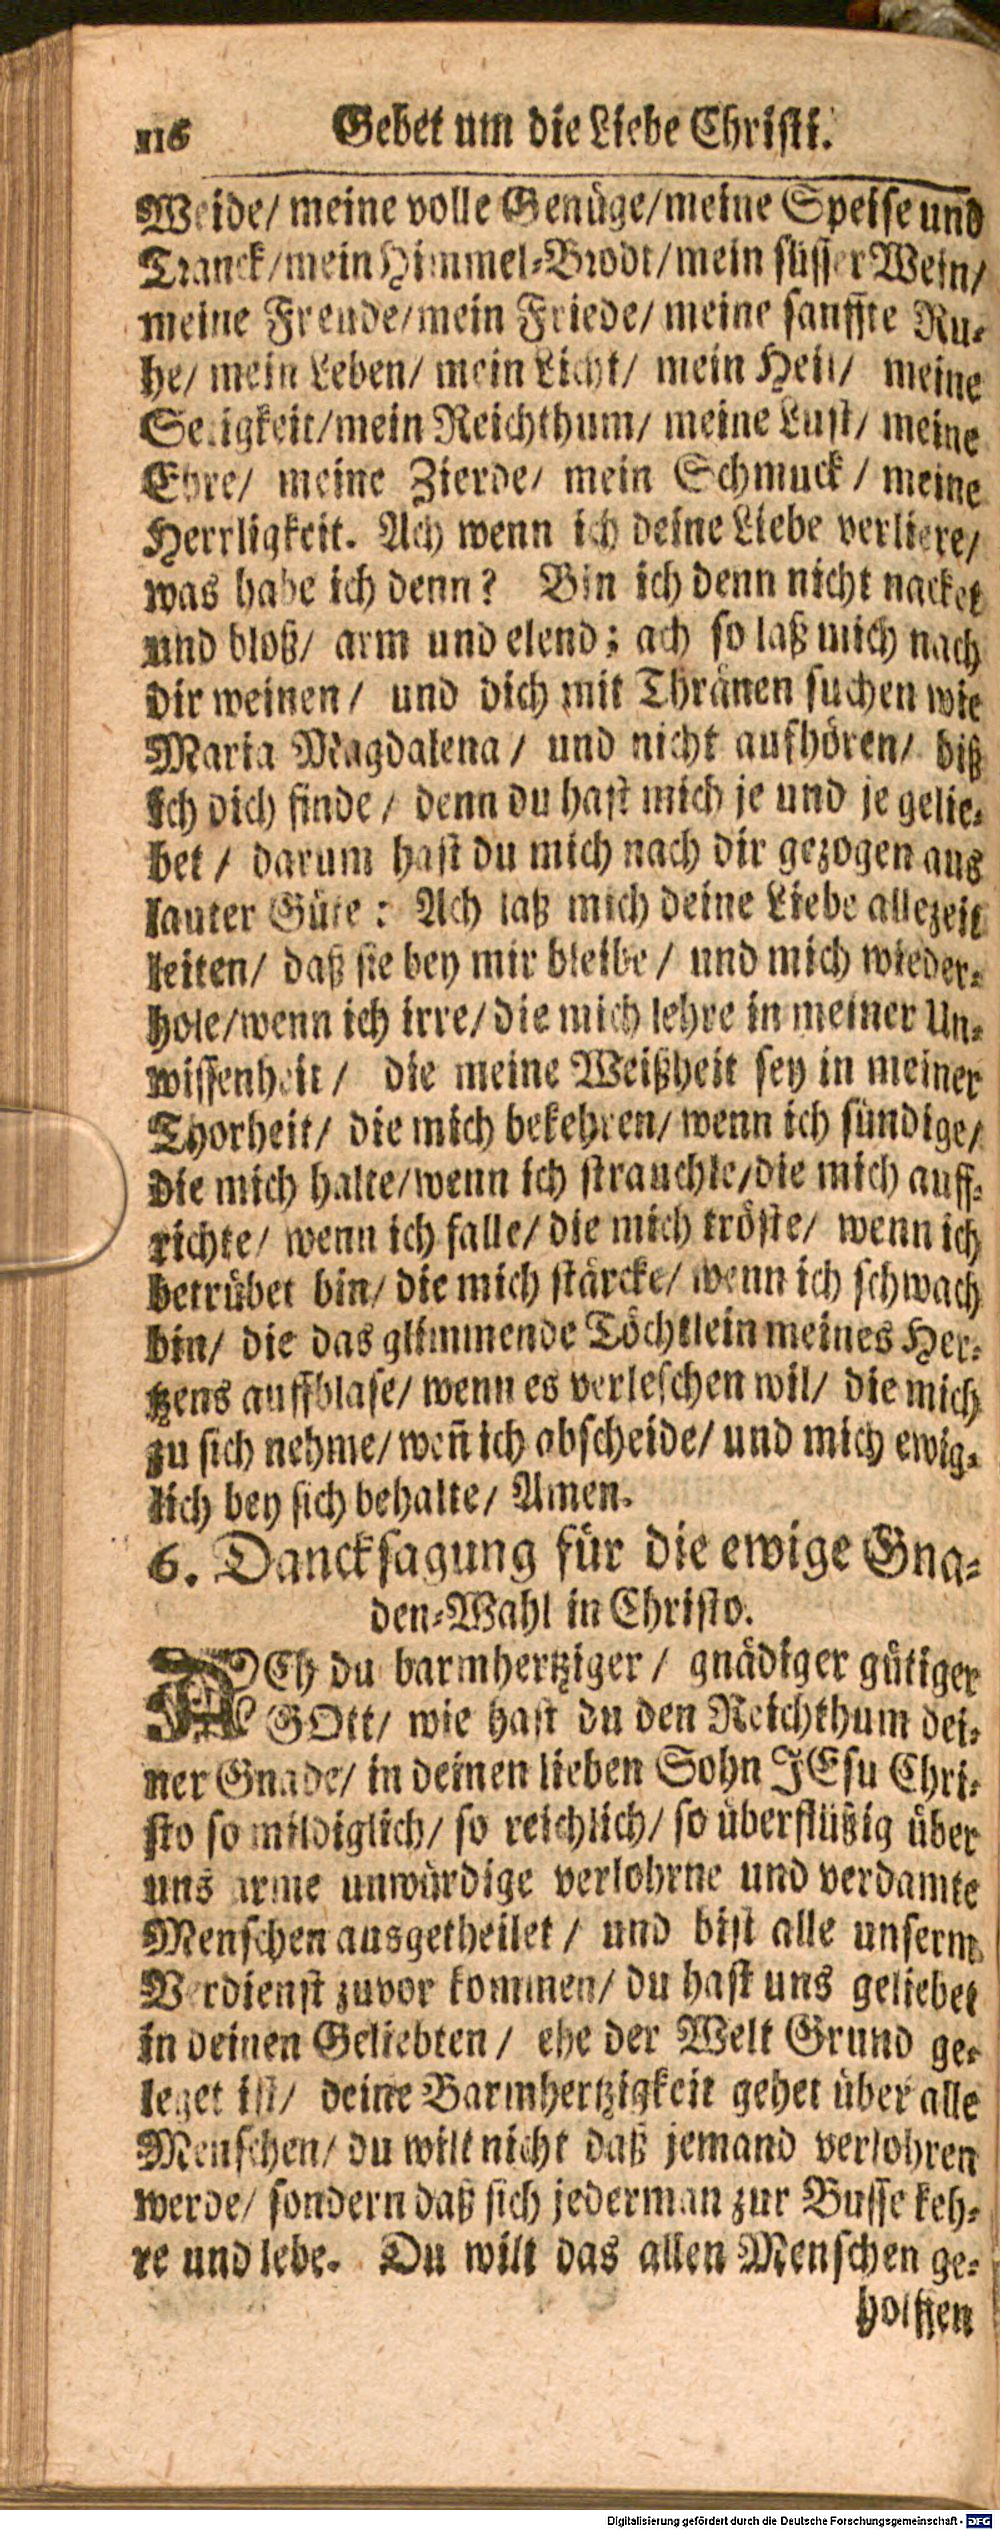 116 Gebet um die Liebe Christi.
Weide/ meine volle Genüge/meine Speise und
Tranck/mein Himmel-Brodt/mein süsser Wein/
meine Freude/mein Friede/ meine sanffte Ru-
he/ mein Leben/ mein Licht/ mein Heil/ meine
Seligkeit/mein Reichthum/ meine Lust/ meine
Ehre/ meine Zierde/ mein Schmuck/ meine
Herrligkeit. Ach wenn ich deine Liebe verliere/
was habe ich denn? Bin ich denn nicht nacket
und bloß/ arm und elend; ach so laß mich nach
dir weinen/ und dich mit Thränen suchen wie
Maria Magdalena/ und nicht aufhören/ biß
ich dich finde/ denn du hast mich je und je gelie-
bet/ darum hast du mich nach dir gezogen aus
lauter Güte: Ach laß mich deine Liebe allezeit
leiten/ daß sie bey mir bleibe/ und mich wieder-
hole/wenn ich irre/die mich lehre in meiner Un-
wissenheit/ die meine Weißheit sey in meiner
Thorheit/ die mich bekehren/ wenn ich sündige/
die mich halte/wenn ich strauchle/die mich auff-
richte/ wenn ich falle/ die mich tröste/ wenn ich
betrübet bin/ die mich stärcke/ wenn ich schwach
bin/ die das glimmende Töchtlein meines Her-
tzens auffblase/ wenn es verleschen wil/ die mich
zu sich nehme/ weñ ich abscheide/ und mich ewig-
lich bey sich behalte/ Amen.
6. Dancksagung für die ewige Gna-
den-Wahl in Christo.
ACh du barmhertziger/ gnädiger gütiger
GOtt/ wie hast du den Reichthum dei-
ner Gnade/ in deinen lieben Sohn JEsu Chri-
sto so mildiglich/ so reichlich/ so überflüßig über
uns arme unwürdige verlohrne und verdamte
Menschen ausgetheilet/ und bist alle unserm
Verdienst zuvor kommen/ du hast uns geliebet
in deinen Geliebten/ ehe der Welt Grund ge-
leget ist/ deine Barmhertzigkeit gehet über alle
Menschen/ du wilt nicht daß jemand verlohren
werde/ sondern daß sich jederman zur Busse keh-
re und lebe. Du wilt das allen Menschen ge-
holffen
Digitalisierung gefördert durch die Deutsche Forschungsgemeinschaft - DFG